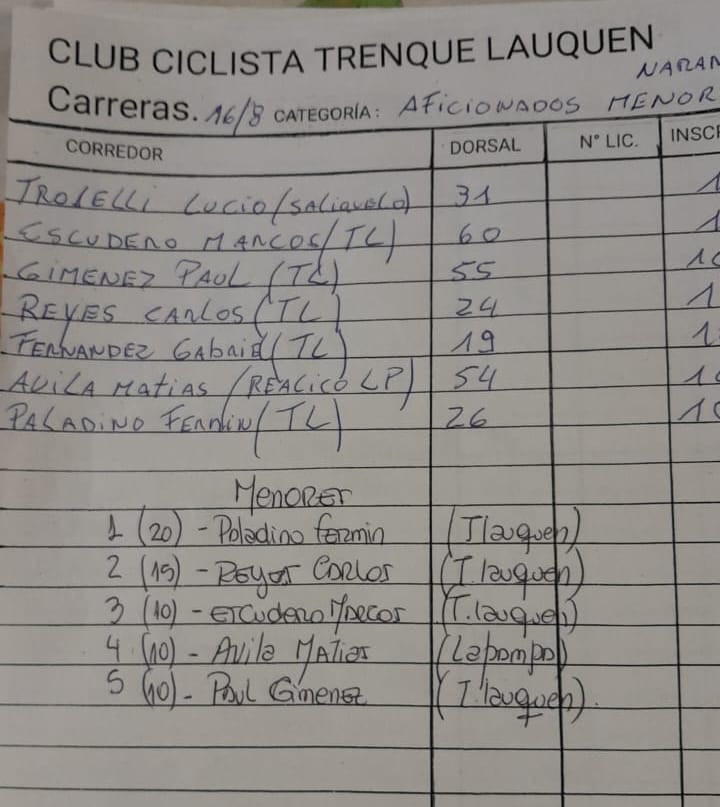 CLUB CICLISTA TRENQUE LAUQUEN
NARAN
Carreras. 16/8 CATEGORÍA: AFICIONADOS MENOR
CORREDOR DORSAL N° LIC. INSCR
TROSELLI LUCIO (SALIQUELO) 31 1
ESCUDERO MARCOS (TL) 60 1
GIMENEZ PAUL (TL) 55 10
REYES CARLOS (TL) 24 1
FERNANDEZ GABRIEL (TL) 19 1
AVILA MATIAS (REALICÓ LP) 54 10
PALADINO FERMIN (TL) 26 10
MENORES
1 (20) - Paladino fermin (T lauquen)
2 (15) - Reyes Carlos (T. lauquen)
3 (10) - escudero Marcos (T. lauquen)
4 (10) - Avila Matias (Lapampa)
5 (10) - Paul Gimenez (T. lauquen).